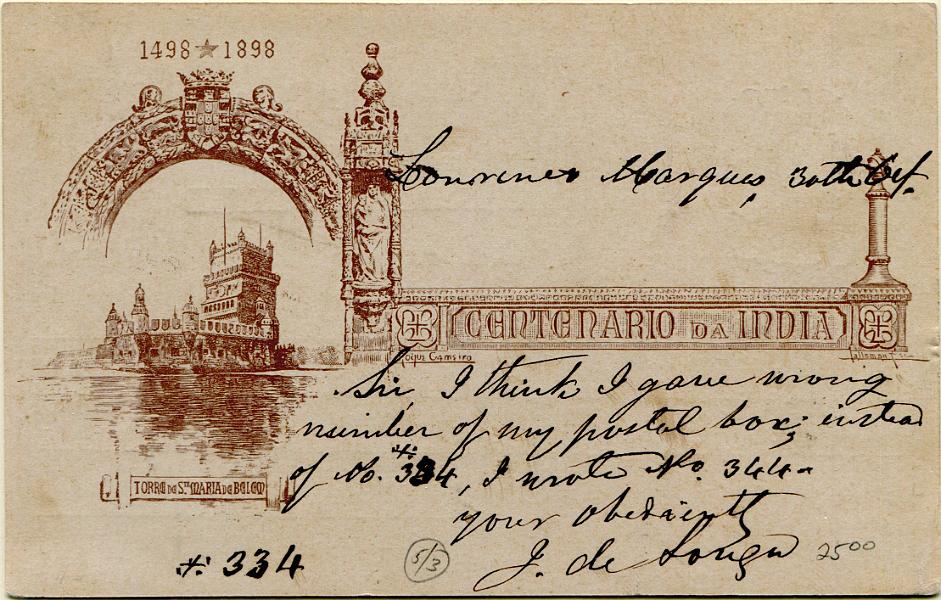 1498 ★ 1898
Lourenco Marques, 30th
CENTENARIO DA INDIA
Roque Gameiro
Sir, I think I gave wrong
number of my postal box; instead
of No. *334, I wrote No. 344-
your obediently
J. de Souza
TORRE DE S.TA MARIA DE BELEM
*: 334
5/3
2500